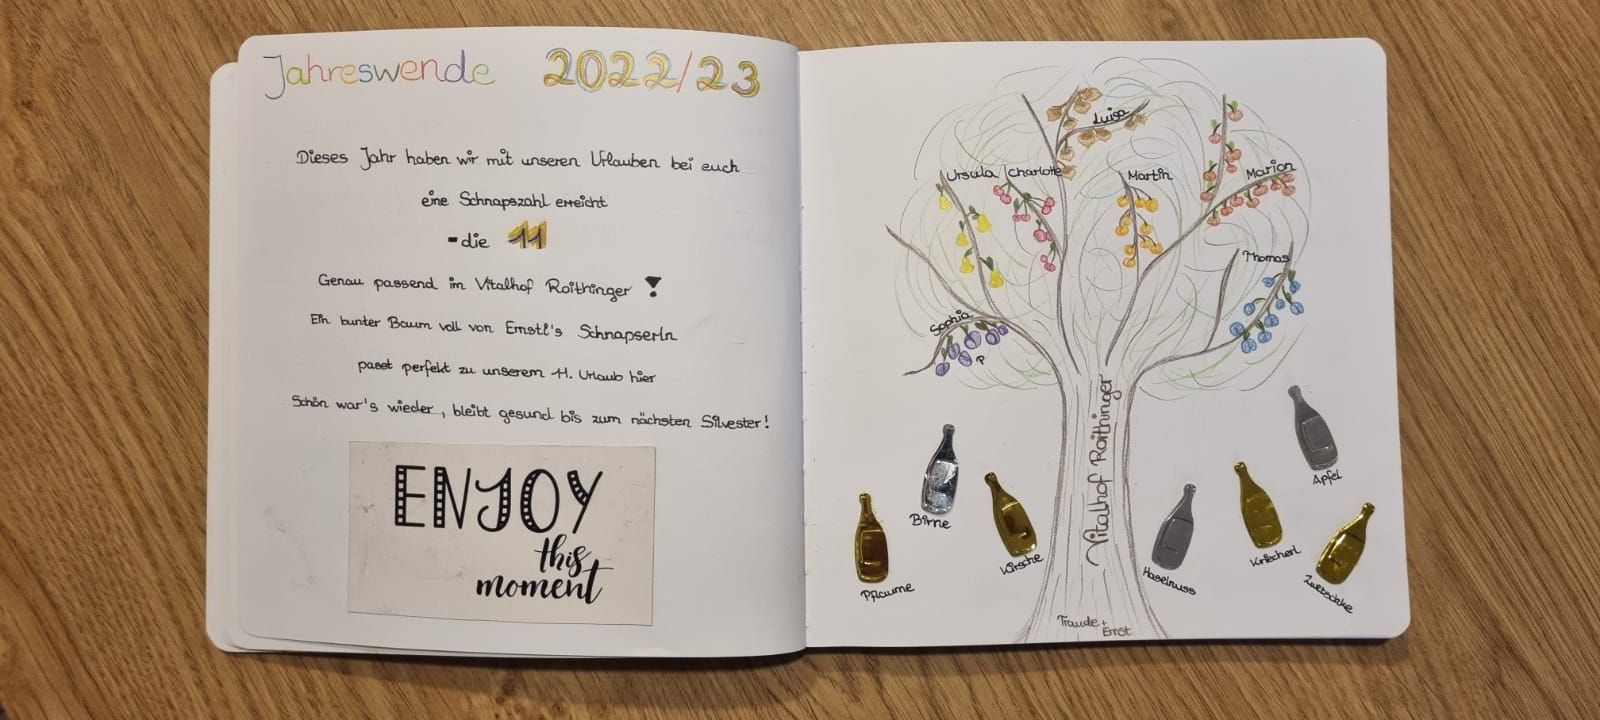 Jahreswende 2022/23
Dieses Jahr haben wir mit unseren Urlauben bei euch
eine Schnapszahl erreicht
- die 11
Genau passend im Vitalhof Roithinger !
Ein bunter Baum voll von Ernstl's Schnapserln
passt perfekt zu unserem 11. Urlaub hier
Schön war's wieder, bleibt gesund bis zum nächsten Silvester!
ENJOY
this
moment
Luisa
Ursula
Charlotte
Martin
Marion
Thomas
Sophia
P
Vitalhof Roithinger
Apfel
Birne
Kirsche
Pflaume
Haselnuss
Kriecherl
Zwetschke
Traude +
Ernst